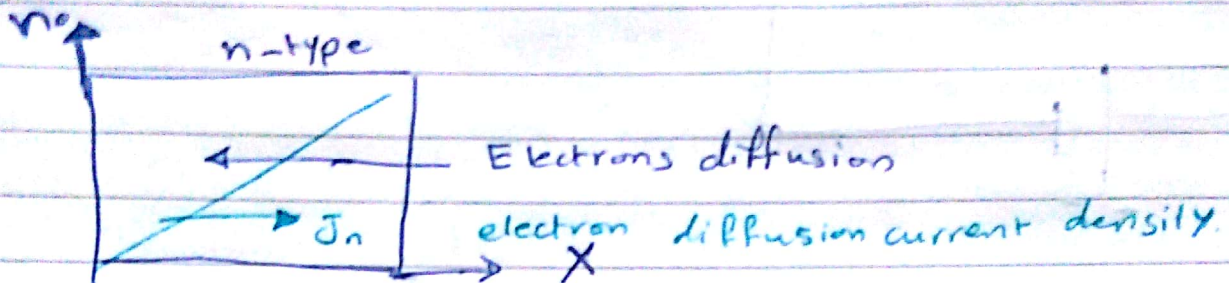 n°
n-type
Electrons diffusion
Jn electron diffusion current density.
X